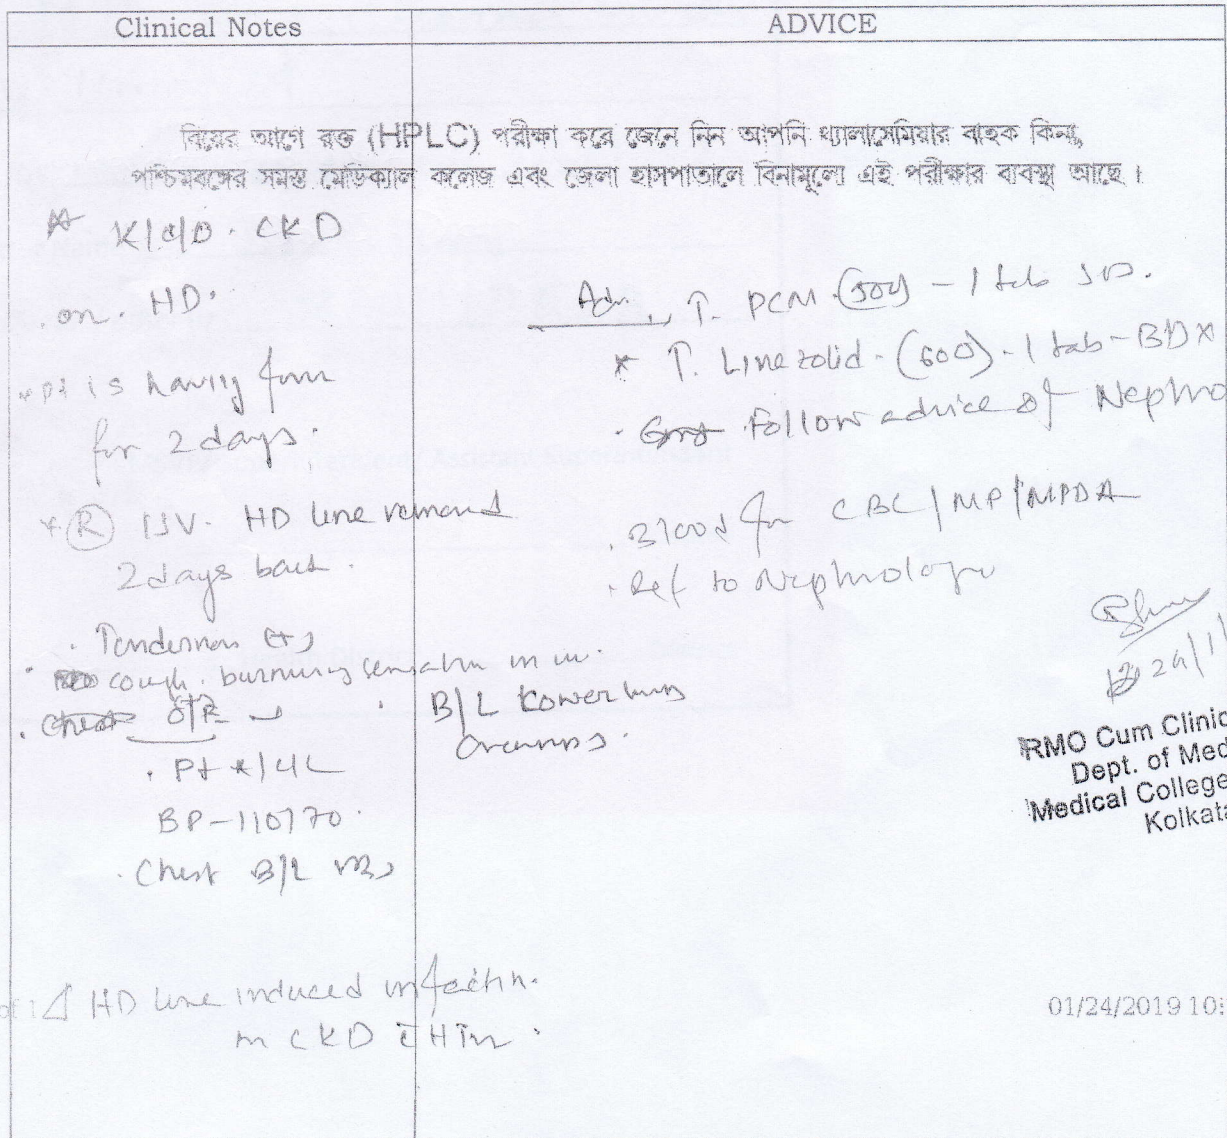 Clinical Notes
ADVICE
বিয়ের আগে রক্ত (HPLC) পরীক্ষা করে জেনে নিন আপনি থ্যালাসেমিয়ার বাহক কিনা,
পশ্চিমবঙ্গের সমস্ত মেডিক্যাল কলেজ এবং জেলা হাসপাতালে বিনামূল্যে এই পরীক্ষার ব্যবস্থা আছে।
K/C/O. CKD
on. HD.
pt is having
for 2 days.
(R) IJV. HD line removed
2 days back.
Tenderness (+)
cough. burning sensation in
O/E
Pt
BP-110/70.
Chest B/L
B/L Lower lung
HD line induced infection.
in CKD c̄ HTN.
Adv. T. PCM (500) - 1 tab
* T. Linezolid - (600) - 1 tab - BD x
Follow advice of Nephro
Blood for CBC/MP/MPDA
Ref to Nephrology
RMO Cum Clinic
Dept. of Med
Medical College
Kolkata
01/24/2019 10: